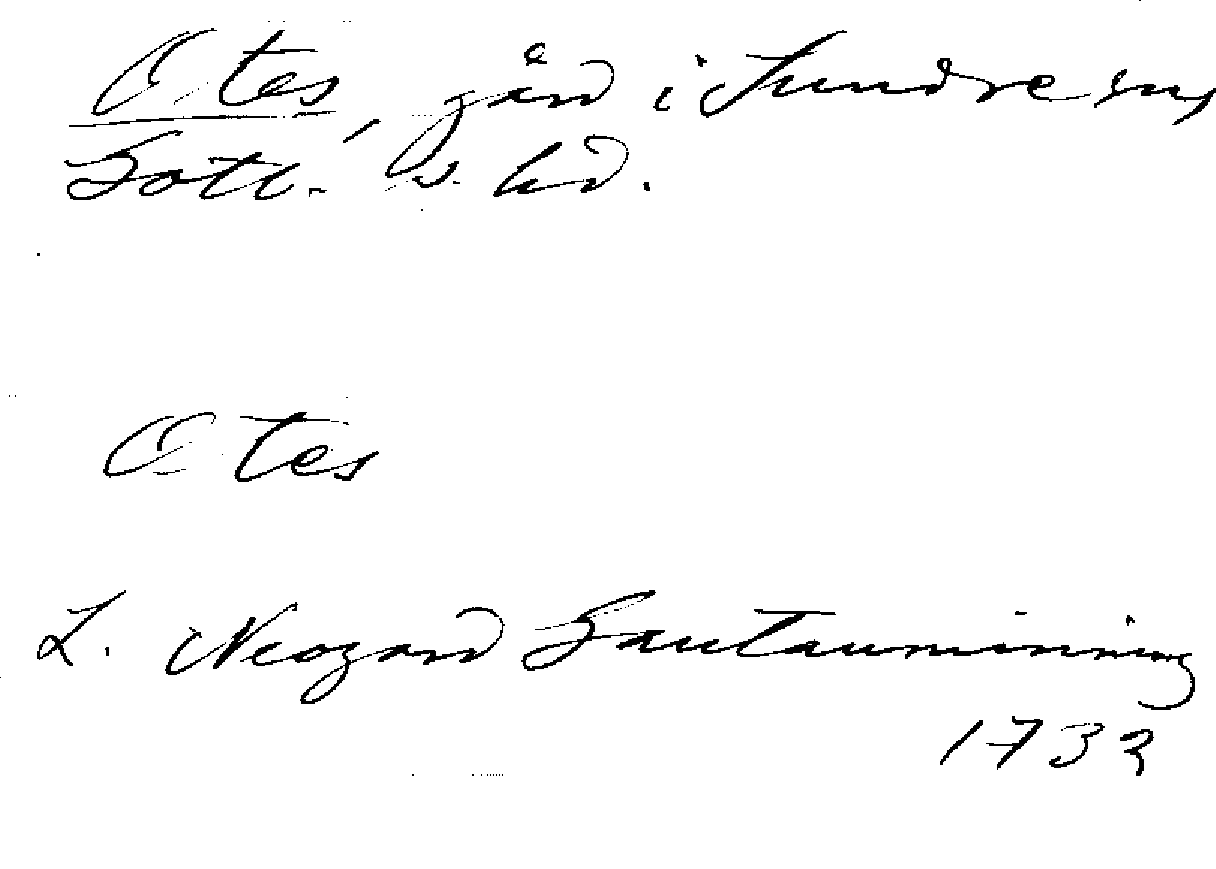 O tes, gård i Sundre sn,
Gotl. s. hd.
O tes
L. Neogard Gautauminning
1732